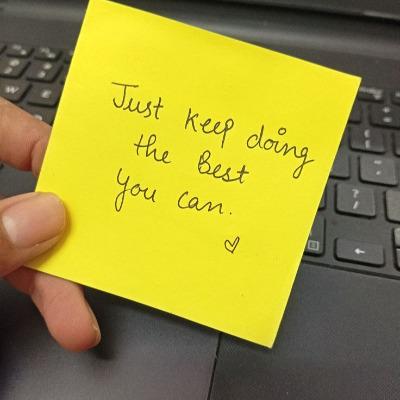 Just keep doing
the Best
you can.
♡